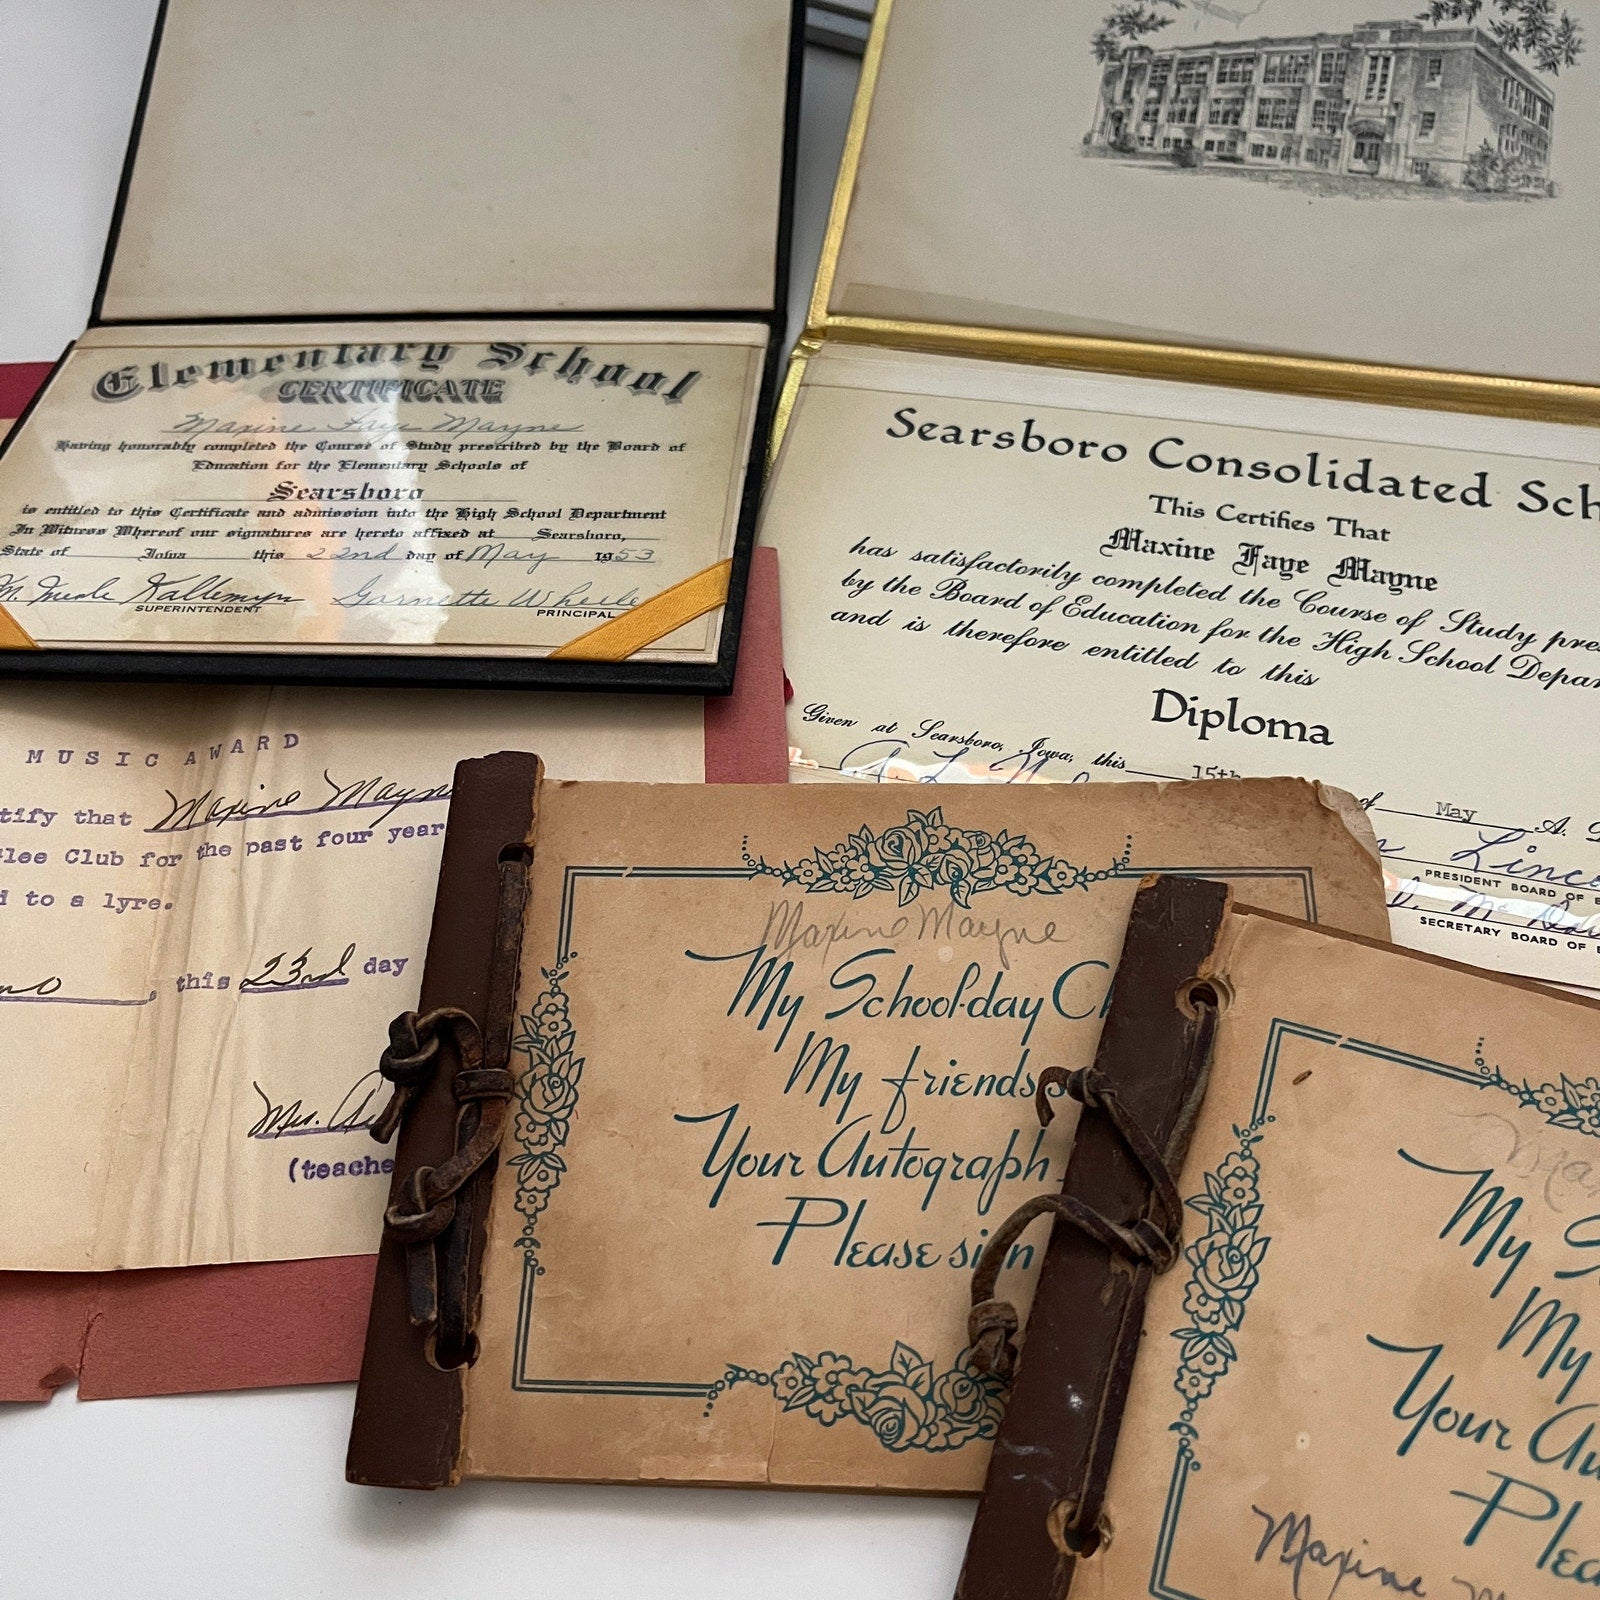 Elementary School
CERTIFICATE
Maxine Faye Mayne
Having honorably completed the Course of Study prescribed by the Board of
Education for the Elementary Schools of
Searsboro
is entitled to this Certificate and admission into the High School Department
In Witness Whereof our signatures are hereto affixed at Searsboro,
State of Iowa this 22nd day of May 1953
SUPERINTENDENT
Garnette
PRINCIPAL
Searsboro Consolidated Sch
This Certifies That
Maxine Faye Mayne
has satisfactorily completed the Course of Study pres
by the Board of Education for the High School Depar
and is therefore entitled to this
Diploma
Given at Searsboro, Iowa, this 15th
of May A. D
Linco
PRESIDENT BOARD OF E
SECRETARY BOARD OF E
MUSIC AWARD
tify that Maxine Mayne
Glee Club for the past four year
d to a lyre.
, this 23rd day
Mrs.
(teache
Maxine Mayne
My School-day C
My friends
Your Autograph
Please sign
My S
My
Your Au
Plea
Maxine M